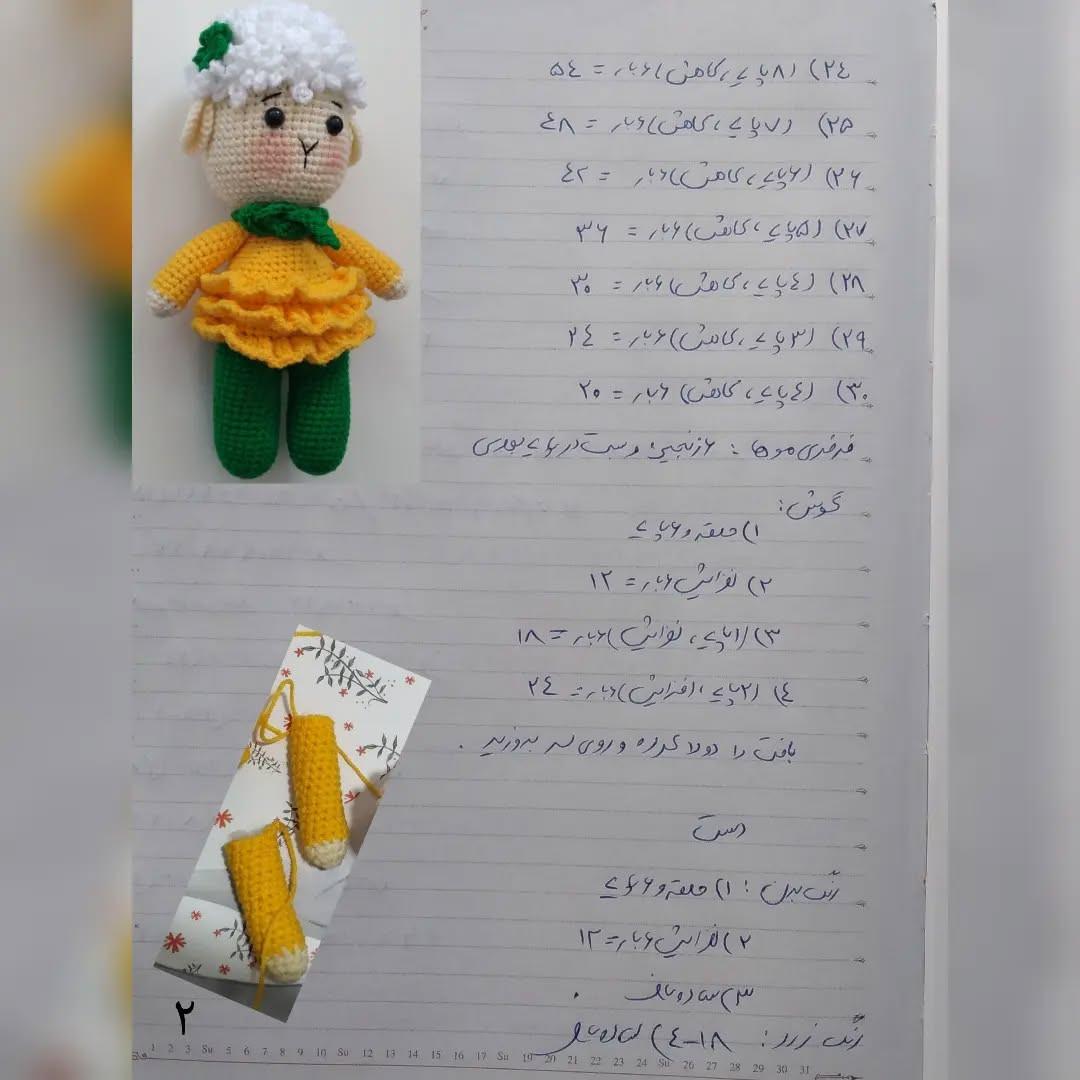 ۲۴) (۸ پایه، کاهش) ۶ بار = ۵۴
۲۵) (۷ پایه، کاهش) ۶ بار = ۴۸
۲۶) (۶ پایه، کاهش) ۶ بار = ۴۲
۲۷) (۵ پایه، کاهش) ۶ بار = ۳۶
۲۸) (۴ پایه، کاهش) ۶ بار = ۳۰
۲۹) (۳ پایه، کاهش) ۶ بار = ۲۴
۳۰) (۴ پایه، کاهش) ۶ بار = ۲۰
فرفری موها : ۶ زنجیر، و بست در پایه بعدی
گوش:
۱) حلقه و ۶ پایه
۲) افزایش ۶ بار = ۱۲
۳) (۱ پایه، افزایش) ۶ بار = ۱۸
۴) (۲ پایه، افزایش) ۶ بار = ۲۴
بافت را دولا کرده و روی سر بدوزید.
دست
رنگ بدن : ۱) حلقه و ۶ پایه
۲) افزایش ۶ بار = ۱۲
۳) ساده باف.
رنگ زرد : ۱۸-۴) ساده باف
۲
1 2 3 Su 5 6 7 8 9 10 Su 12 13 14 15 16 17 Su 19 20 21 22 23 24 Su 26 27 28 29 30 31